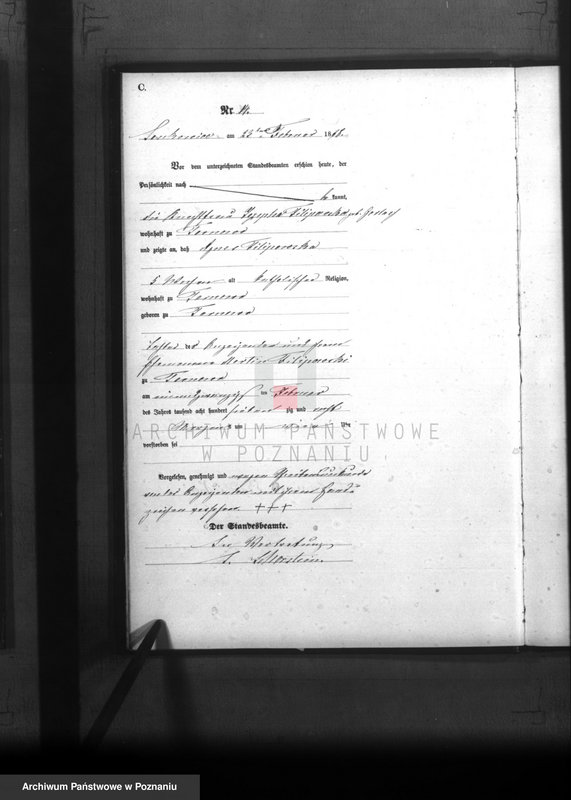 C.
Nr. 14.
am 23 ten Februar 1878.
Vor dem unterzeichneten Standesbeamten erschien heute, der
Persönlichkeit nach
be kannt,
die Filipowska geb.
wohnhaft zu
und zeigte an, daß Agnes Filipowska
5 Wochen alt katholischer Religion,
wohnhaft zu
geboren zu
Tochter der Anzeigenden und ihres
Ehemannes Martin Filipowski
zu
am einundzwanzigsten ten Februar
des Jahres tausend acht hundert siebenzig und acht
Morgens um Uhr
verstorben sei
Vorgelesen, genehmigt und wegen Schreibensunkunde
von der Anzeigenden mit ihrem Hand
zeichen versehen. +++
Der Standesbeamte.
In Vertretung
ARCHIWUM PAŃSTWOWE
W POZNANIU
Archiwum Państwowe w Poznaniu